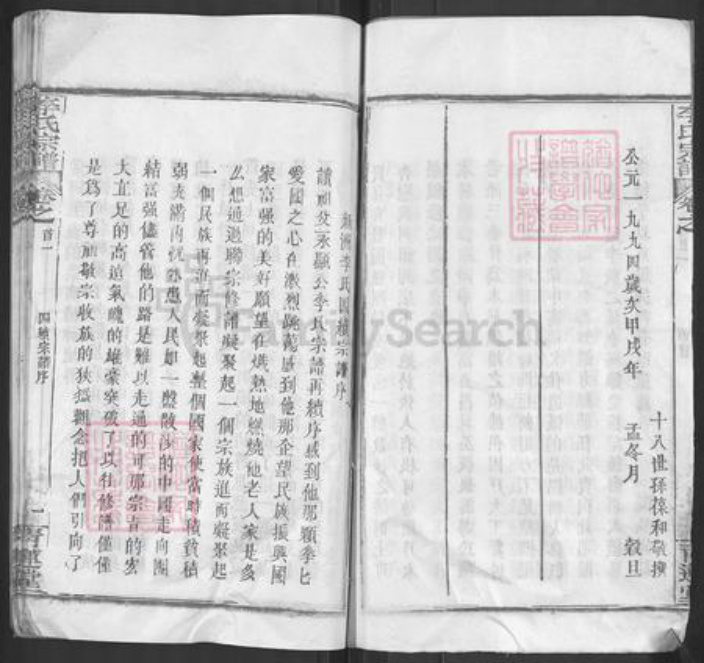 李氏宗譜
卷之
十八世孫葆和敬撰
公元一九九四歲次甲戌年 孟冬月 穀旦
李氏四續宗譜序
讀祖父永顯公李氏宗譜再續序感到他那顆拳匕
愛國之心在激烈跳蕩感到他那企望民族振興國
家富强的美好願望在熾熱地燃燒他老人家是多
么想通過聯宗修譜凝聚起一個宗族進而凝聚起
一個民族再進而凝聚起整個國家使當時積貧積
弱支離
人民如一盤散沙的中國走向團
結富强儘管他的路是難以走通的可那宗吉的宏
大直足的高遠氣魄的雄豪突破了以往修譜僅僅
是爲了尊祖敬宗收族的狹
觀念把人們引向了
李氏宗譜
卷之
首一
四續宗譜序
一
FamilySearch